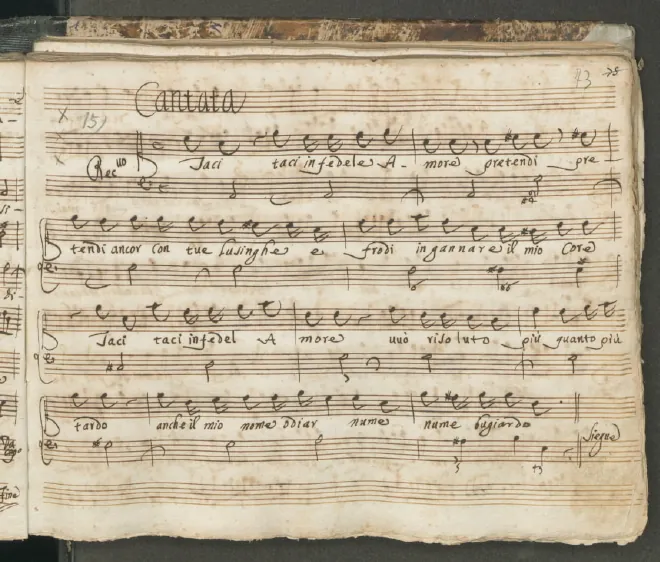 43
Cantata
15)
Rec.uo Taci taci infedele A- more pretendi pre
tendi ancor con tue lusinghe e frodi ingannare il mio Core
Taci taci infedel A more vuò risoluto più quanto più
tardo anche il mio nome odiar nume nume bugiardo
Siegue
fine